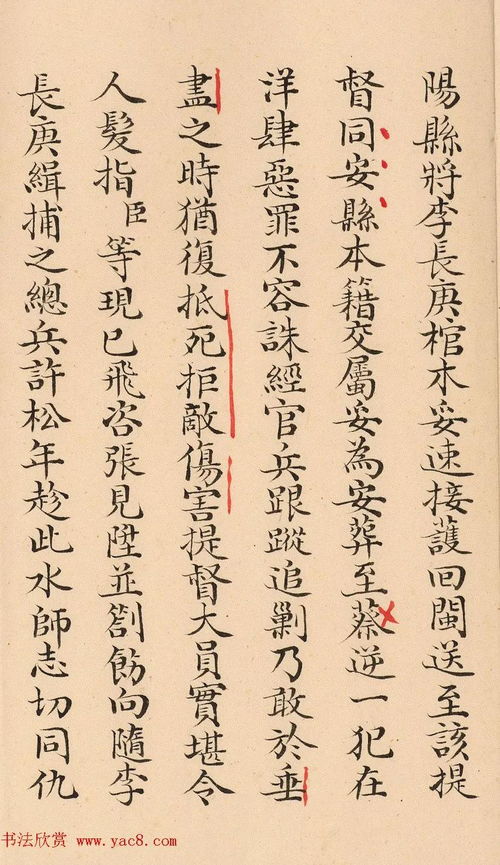 陽縣將李長庚棺木妥速接護回閩送至該提
督同安縣本籍交屬妥為安葬至蔡逆一犯在
洋肆惡罪不容誅經官兵跟蹤追剿乃敢於垂
盡之時猶復抵死拒敵傷害提督大員實堪令
人髮指臣等現已飛咨張見陞並劄飭向隨李
長庚緝捕之總兵許松年趁此水師志切同仇
书法欣赏 www.yac8.com